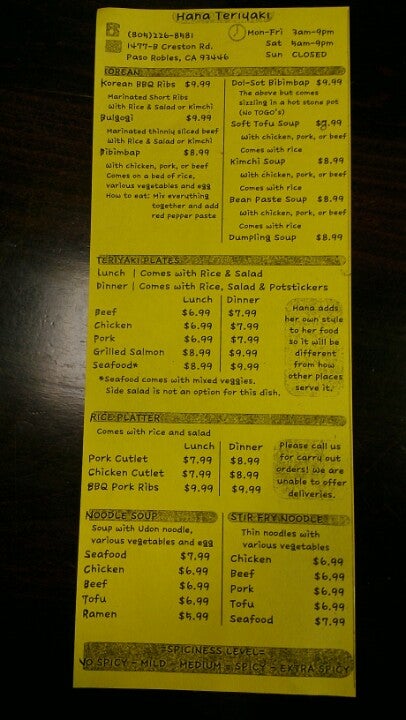 Hana Teriyaki
(804)226-8481
1477-B Creston Rd.
Paso Robles, CA 93446
Mon-Fri 3am-9pm
Sat 4am-9pm
Sun CLOSED
KOREAN
Korean BBQ Ribs $9.99
Marinated Short Ribs
with Rice & Salad or Kimchi
Bulgogi $9.99
Marinated thinnly sliced beef
with Rice & Salad or Kimchi
Bibimbap $8.99
with chicken, pork, or beef
Comes on a bed of rice,
various vegetables and egg
How to eat: Mix everything
together and add
red pepper paste
Dol-Sot Bibimbap $9.99
The above but comes
sizzling in a hot stone pot
(No TOGO's)
Soft Tofu Soup $9.99
with chicken, pork, or beef
Comes with rice
Kimchi Soup $8.99
with chicken, pork, or beef
Comes with rice
Bean Paste Soup $8.99
with chicken, pork, or beef
Comes with rice
Dumpling Soup $8.99
TERIYAKI PLATES
Lunch | Comes with Rice & Salad
Dinner | Comes with Rice, Salad & Potstickers
Lunch Dinner
Beef $6.99 $7.99
Chicken $6.99 $7.99
Pork $6.99 $7.99
Grilled Salmon $8.99 $9.99
Seafood* $8.99 $9.99
*Seafood comes with mixed veggies.
Side salad is not an option for this dish.
Hana adds
her own style
to her food
so it will be
different
from how
other places
serve it.
RICE PLATTER
Comes with rice and salad
Lunch Dinner
Pork Cutlet $7.99 $8.99
Chicken Cutlet $7.99 $8.99
BBQ Pork Ribs $9.99 $9.99
Please call us
for carry out
orders! We are
unable to offer
deliveries.
NOODLE SOUP
Soup with Udon noodle,
various vegetables and egg
Seafood $7.99
Chicken $6.99
Beef $6.99
Tofu $6.99
Ramen $4.99
STIR FRY NOODLE
Thin noodles with
various vegetables
Chicken $6.99
Beef $6.99
Pork $6.99
Tofu $6.99
Seafood $7.99
=SPICINESS LEVEL=
NO SPICY - MILD - MEDIUM - SPICY - EXTRA SPICY